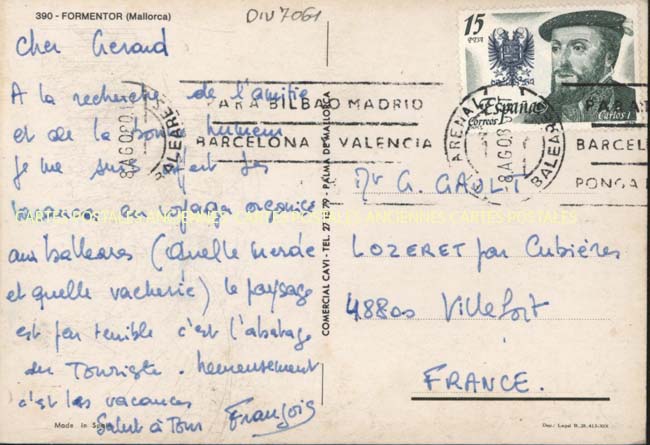 390 - FORMENTOR (Mallorca)
DIV 7061
Cher Gerard
A la recherche de l'amitié
et de la bonne humeur
je me suis offert des
vacances en voyage organisé
aux baleares (quelle merde
et quelle vacherie) le paysage
est pas terrible c'est l'abatage
du Touriste. heureusement
c'est les vacances
Salut à Tous François
Made in Spain
COMERCIAL CAVI - TEL. 27 15 79 - PALMA DE MALLORCA
15
PTA
España
Correos
Carlos I
8 AGO 80
BALEARES
PARA BILBAO MADRID
BARCELONA VALENCIA
ARENAL
8 AGO 80
BALEARES
PARA
BARCEL
PONGA
CARTES POSTALES ANCIENNES CARTES POSTALES ANCIENNES CARTES POSTALES
Mr G. GAULT
LOZERET par Cubières
48800 Villefort
FRANCE.
Dep. Legal B.